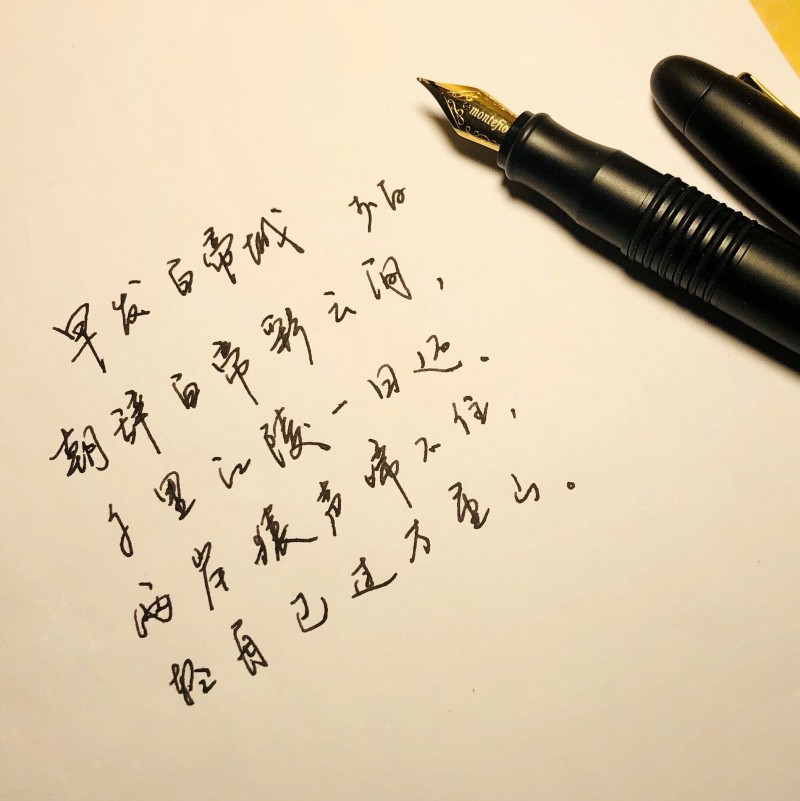 montefio
早发白帝城 李白
朝辞白帝彩云间，
千里江陵一日还.
两岸猿声啼不住，
轻舟已过万重山。